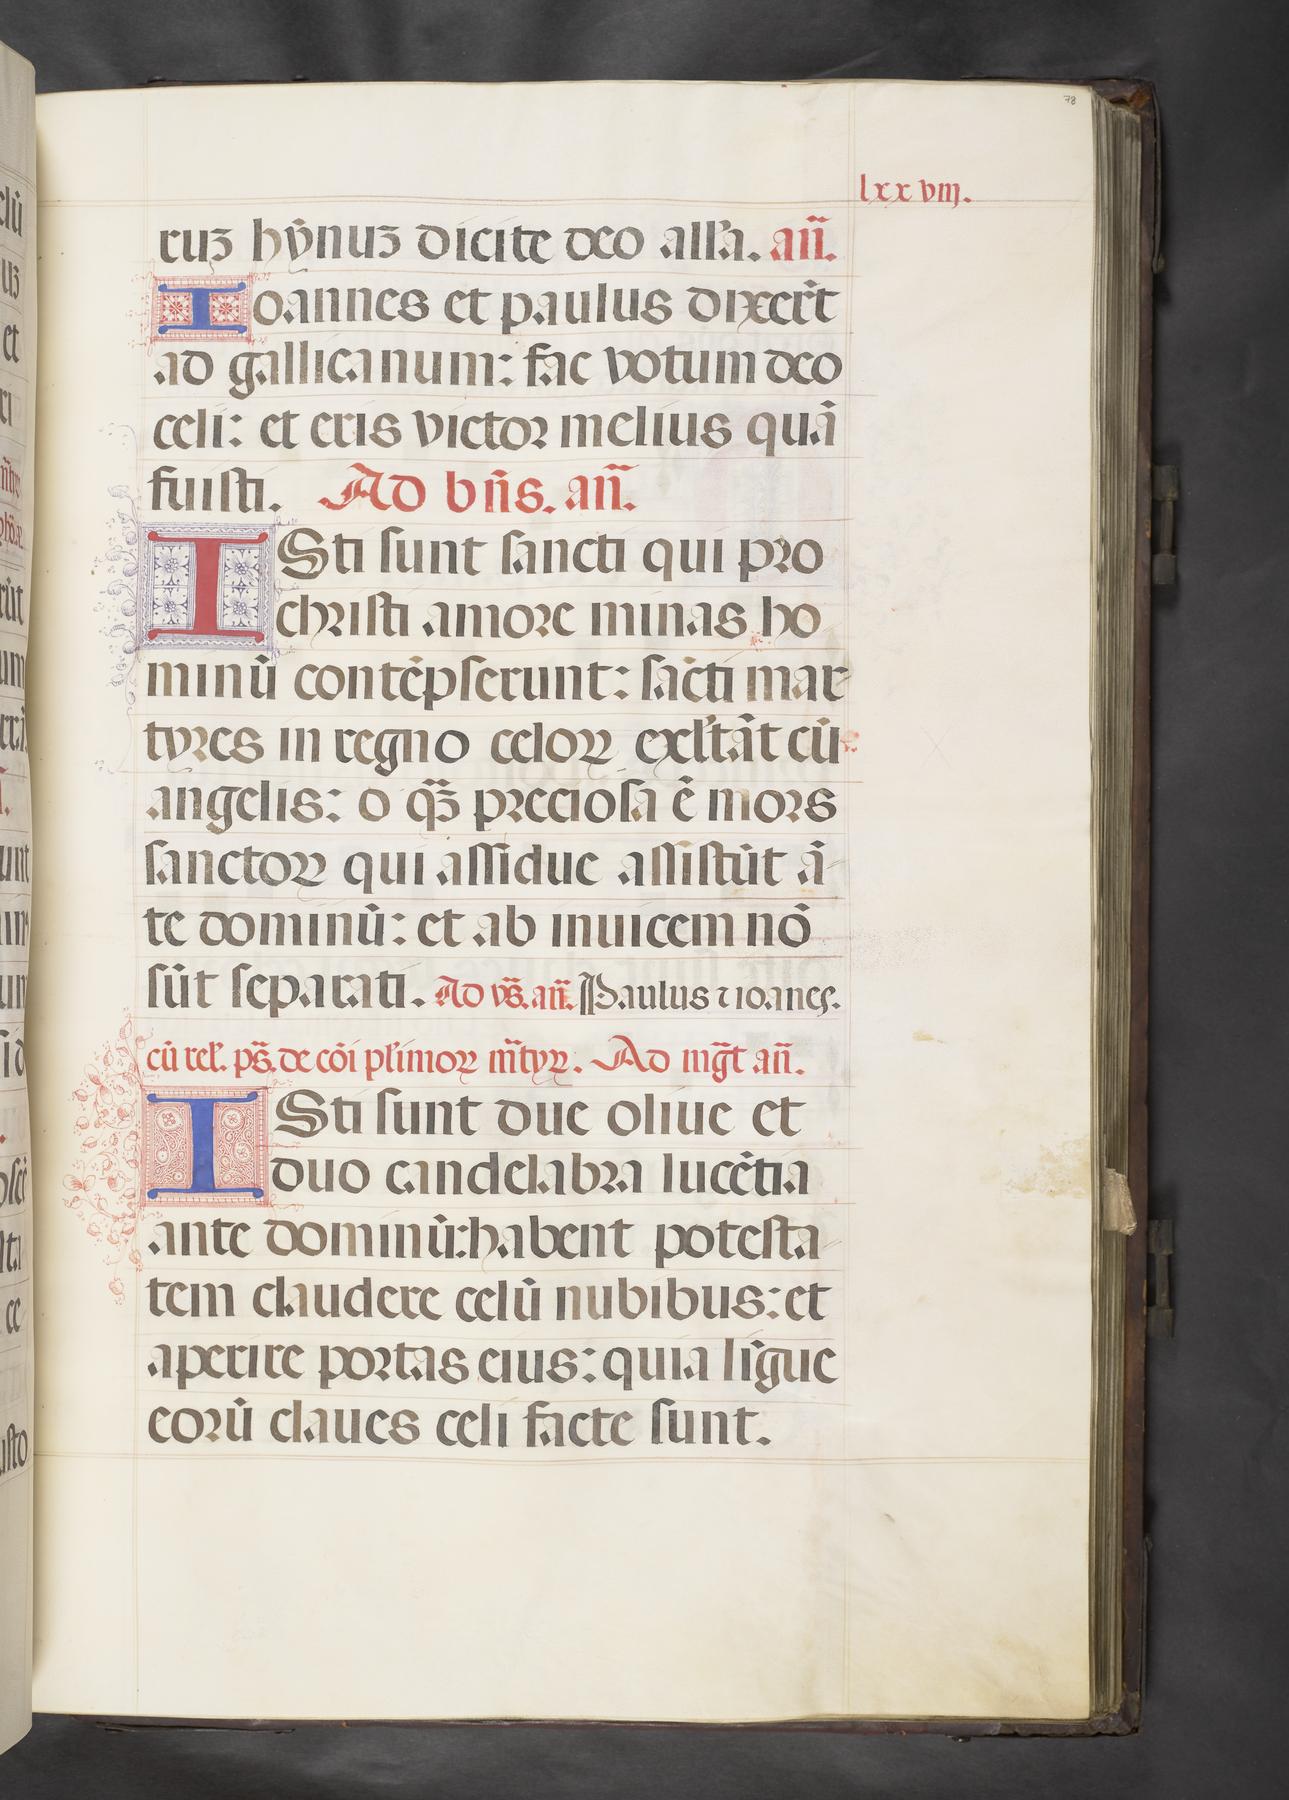 78
lxxviij.
ruʒ hȳnuʒ dicite deo all'a. an̄.
Ioannes et paulus dixer̄t
ad gallicanum: fac votum deo
celi: et eris victor melius quā
fuisti. Ad bn̄s. an̄.
ISti sunt sancti qui pro
christi amore minas ho
minū contēpserunt: sācti mar
tyres in regno celoꝝ exl'tāt cū
angelis: o qʒ̄ preciosa ē mors
sanctoꝝ qui assidue assistūt ā
te dominū: et ab inuicem nō
sūt separati. Ad vs̄. an̄. Paulus ⁊ ioanes.
cū rel'. ps̄. de cōi pl'imoꝝ m̄tyꝝ. Ad mḡt an̄.
ISti sunt due oliue et
duo candelabra lucētia
ante dominū: habent potesta
tem claudere celū nubibus: et
aperire portas eius: quia līgue
eorū claues celi facte sunt.